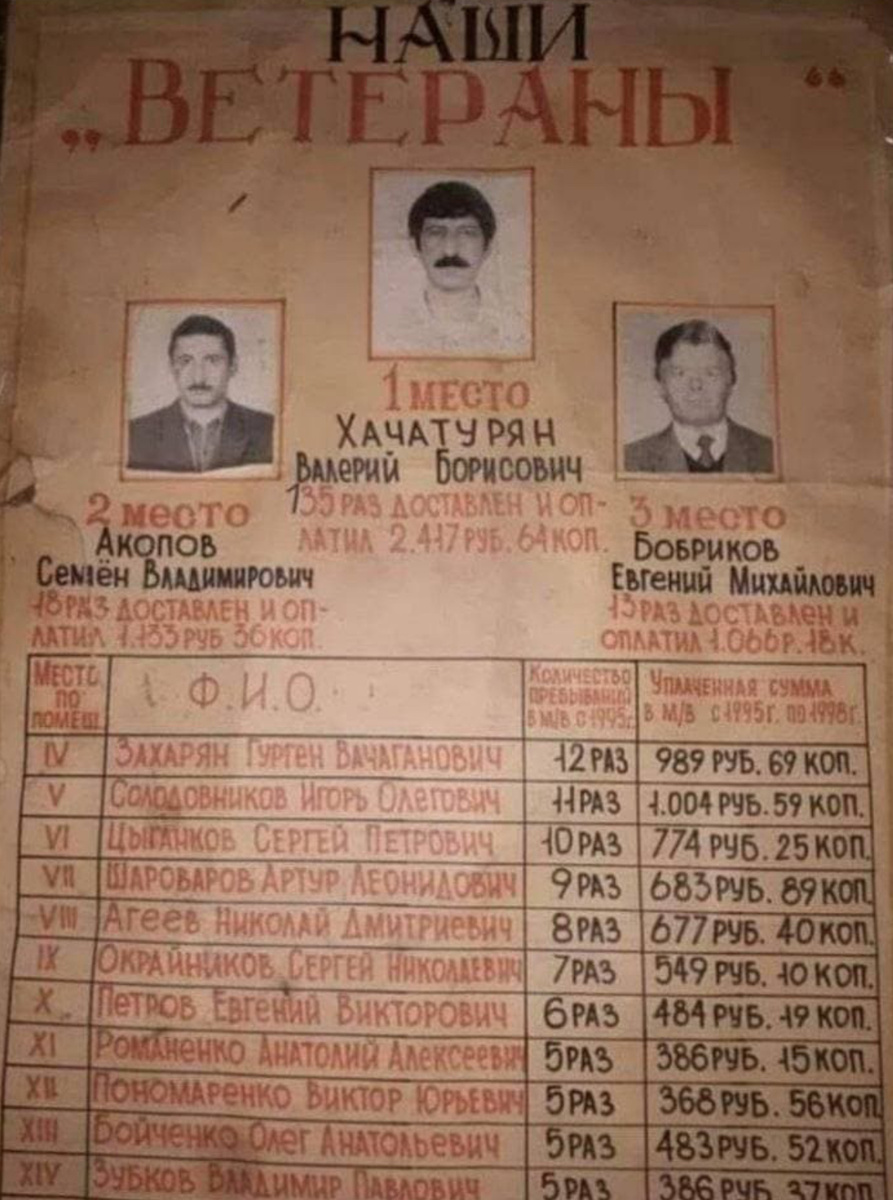 НАШИ
„ВЕТЕРАНЫ“
1 МЕСТО
ХАЧАТУРЯН
ВАЛЕРИЙ БОРИСОВИЧ
135 РАЗ ДОСТАВЛЕН И ОП-
ЛАТИЛ 2.417 РУБ. 64 КОП.
2 МЕСТО
АКОПОВ
СЕМЁН ВЛАДИМИРОВИЧ
18 РАЗ ДОСТАВЛЕН И ОП-
ЛАТИЛ 1.133 РУБ 36 КОП.
3 МЕСТО
БОБРИКОВ
ЕВГЕНИЙ МИХАЙЛОВИЧ
13 РАЗ ДОСТАВЛЕН И
ОПЛАТИЛ 1.066 Р. 18 К.
МЕСТО ПО ПОМЕЩ. Ф.И.О. КОЛИЧЕСТВО ПРЕБЫВАНИЙ В М/В С 1995г. УПЛАЧЕННАЯ СУММА В М/В С 1995г. ПО 1998г.
IV ЗАХАРЯН ГУРГЕН ВАЧАГАНОВИЧ 12 РАЗ 989 РУБ. 69 КОП.
V СОЛОДОВНИКОВ ИГОРЬ ОЛЕГОВИЧ 11 РАЗ 1.004 РУБ. 59 КОП.
VI ЦЫГАНКОВ СЕРГЕЙ ПЕТРОВИЧ 10 РАЗ 774 РУБ. 25 КОП.
VII ШАРОВАРОВ АРТУР ЛЕОНИДОВИЧ 9 РАЗ 683 РУБ. 89 КОП.
VIII АГЕЕВ НИКОЛАЙ ДМИТРИЕВИЧ 8 РАЗ 677 РУБ. 40 КОП.
IX ОКРАЙНИКОВ СЕРГЕЙ НИКОЛАЕВИЧ 7 РАЗ 549 РУБ. 10 КОП.
X ПЕТРОВ ЕВГЕНИЙ ВИКТОРОВИЧ 6 РАЗ 484 РУБ. 19 КОП.
XI РОМАНЕНКО АНАТОЛИЙ АЛЕКСЕЕВИЧ 5 РАЗ 386 РУБ. 15 КОП.
XII ПОНОМАРЕНКО ВИКТОР ЮРЬЕВИЧ 5 РАЗ 368 РУБ. 56 КОП
XIII БОЙЧЕНКО ОЛЕГ АНАТОЛЬЕВИЧ 5 РАЗ 483 РУБ. 52 КОП.
XIV ЗУБКОВ ВЛАДИМИР ПАВЛОВИЧ 5 РАЗ 386 РУБ. 37 КОП.